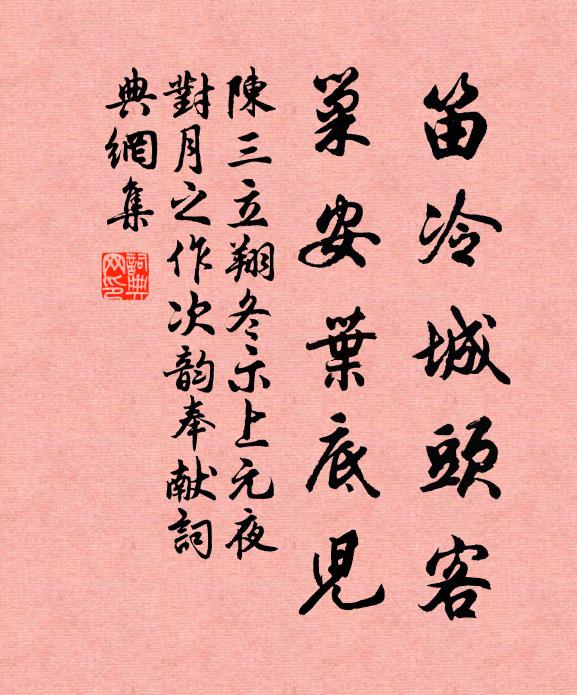 笛冷城頭客
巢安葉底兒
陳三立翔冬示上元夜
對月之作次韵奉献詞
典網集
詞典
网印